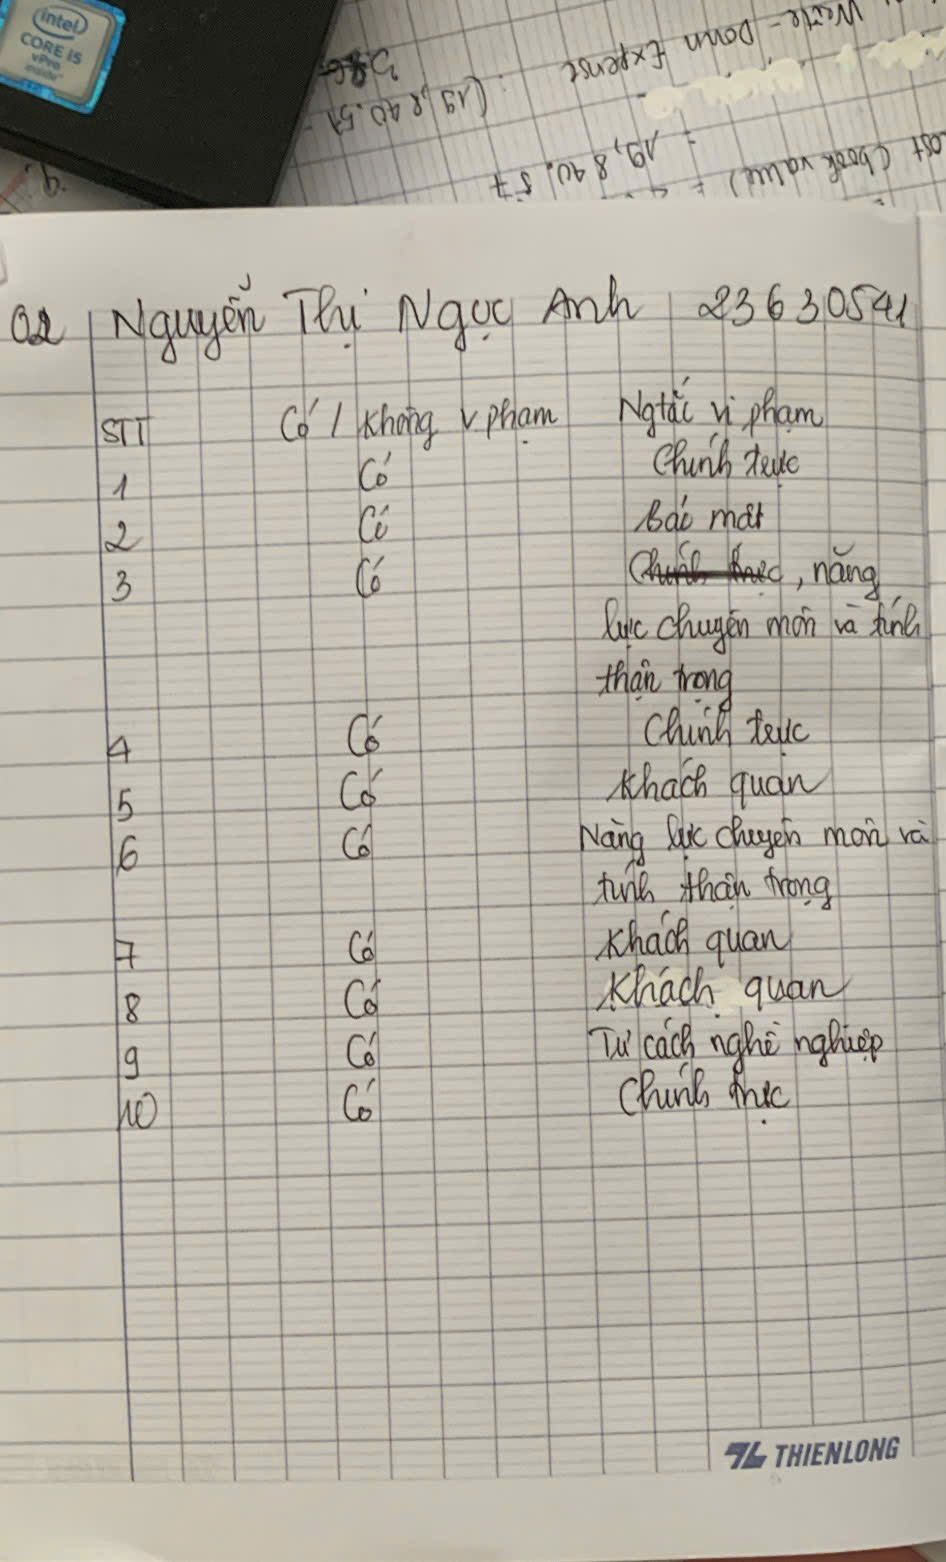 intel
CORE i5
vPro
inside
Write - Down Expense
(19,840.57
Cost (book value)
= 19,840.57
02 Nguyễn Thị Ngọc Anh 23630541
STT Có / không v phạm Ngtắc vi phạm
1 Có Chính trực
2 Có Bảo mật
3 Có Chính trực, năng
lực chuyên môn và tính
thận trọng
4 Có Chính trực
5 Có Khách quan
6 Có Năng lực chuyên môn và
tính thận trọng
7 Có Khách quan
8 Có Khách quan
9 Có Tư cách nghề nghiệp
10 Có Chính trực
THIENLONG